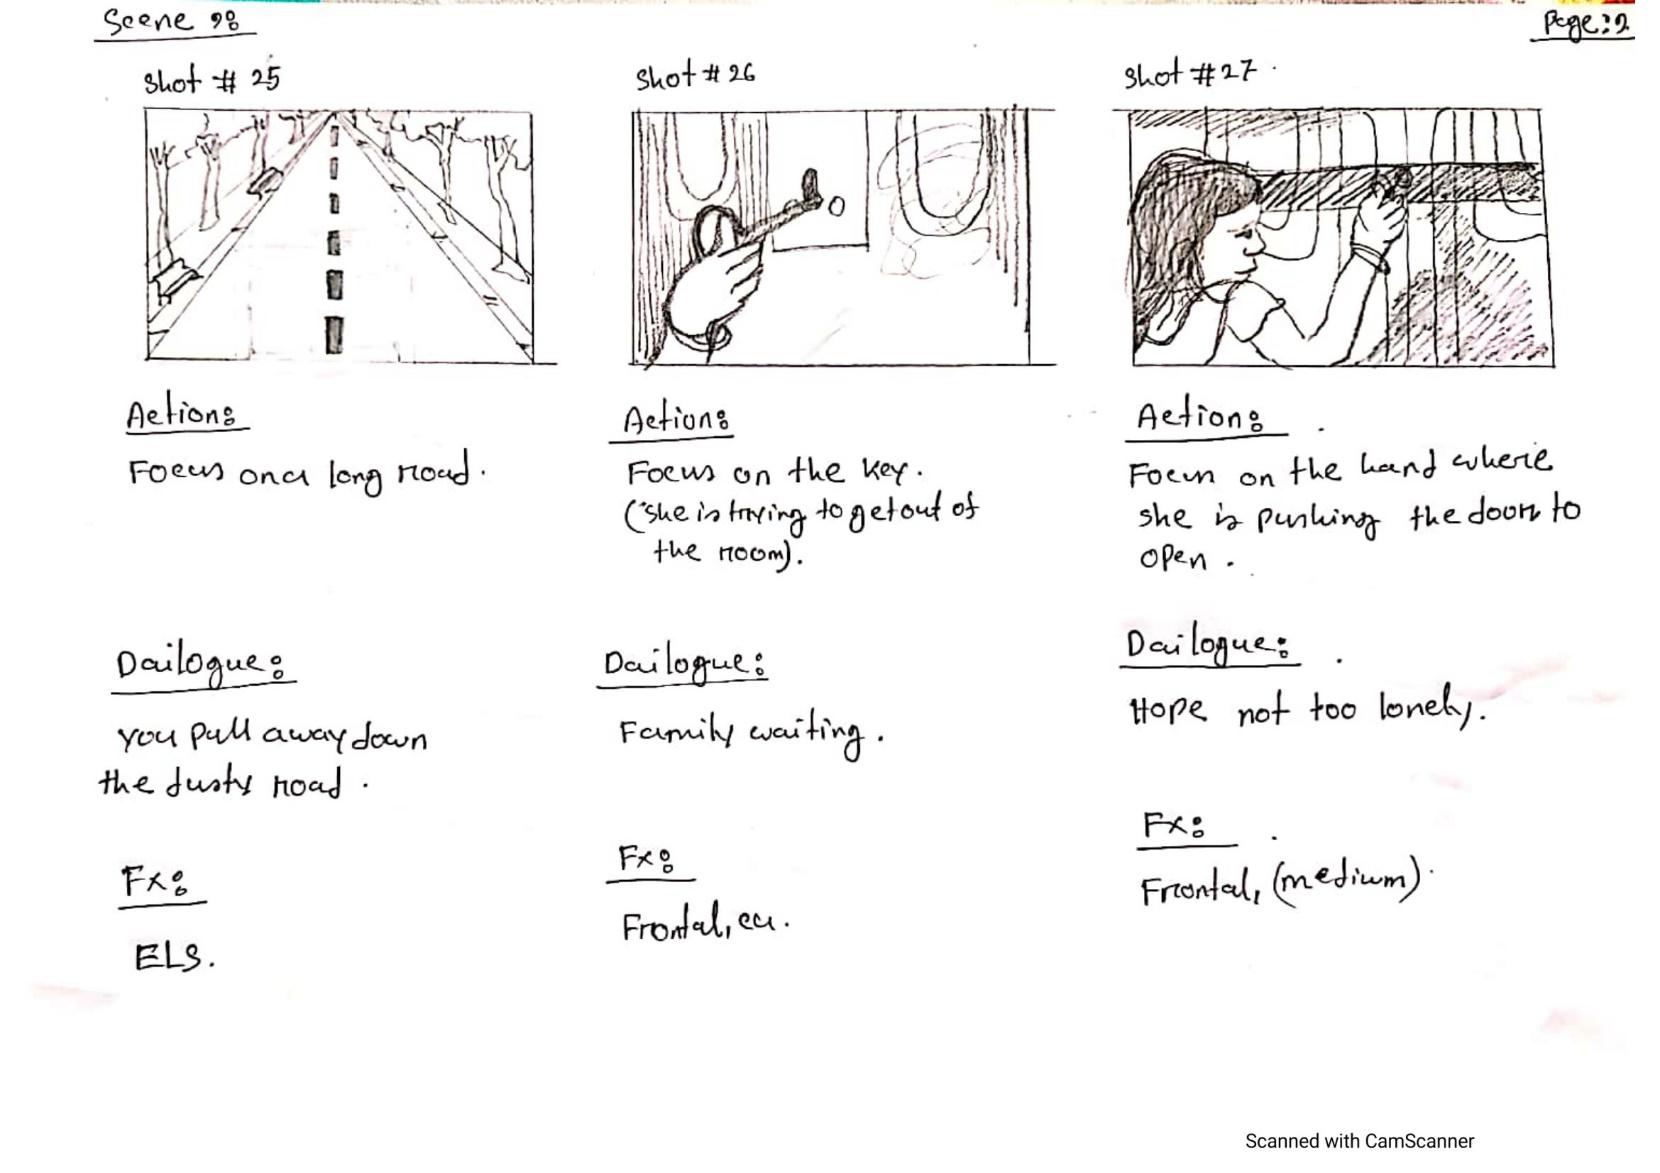 Scene 9:
Page: 9
Shot # 25
Action:
Focus on a long road.
Dailogue:
You pull away down
the dusty road.
Fx:
ELS.
Shot # 26
Action:
Focus on the key.
(She is trying to get out of
the room).
Dailogue:
Family waiting.
Fx:
Frontal, cu.
Shot # 27
Action:
Focus on the hand where
she is pushing the door to
open.
Dailogue:
Hope not too lonely.
Fx:
Frontal, (medium).
Scanned with CamScanner